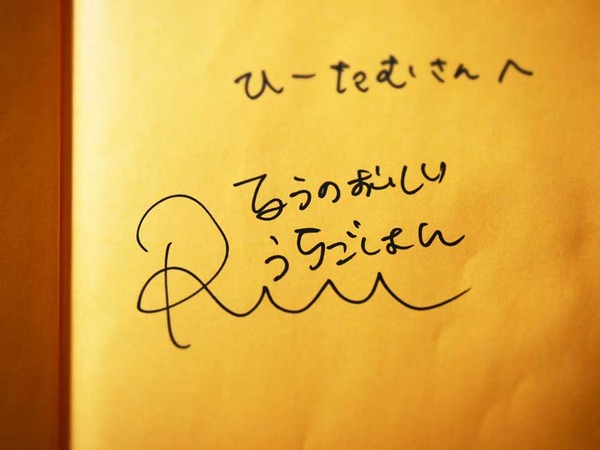 ひーたむさんへ
るうのおいしい
うちごはん
Ruu